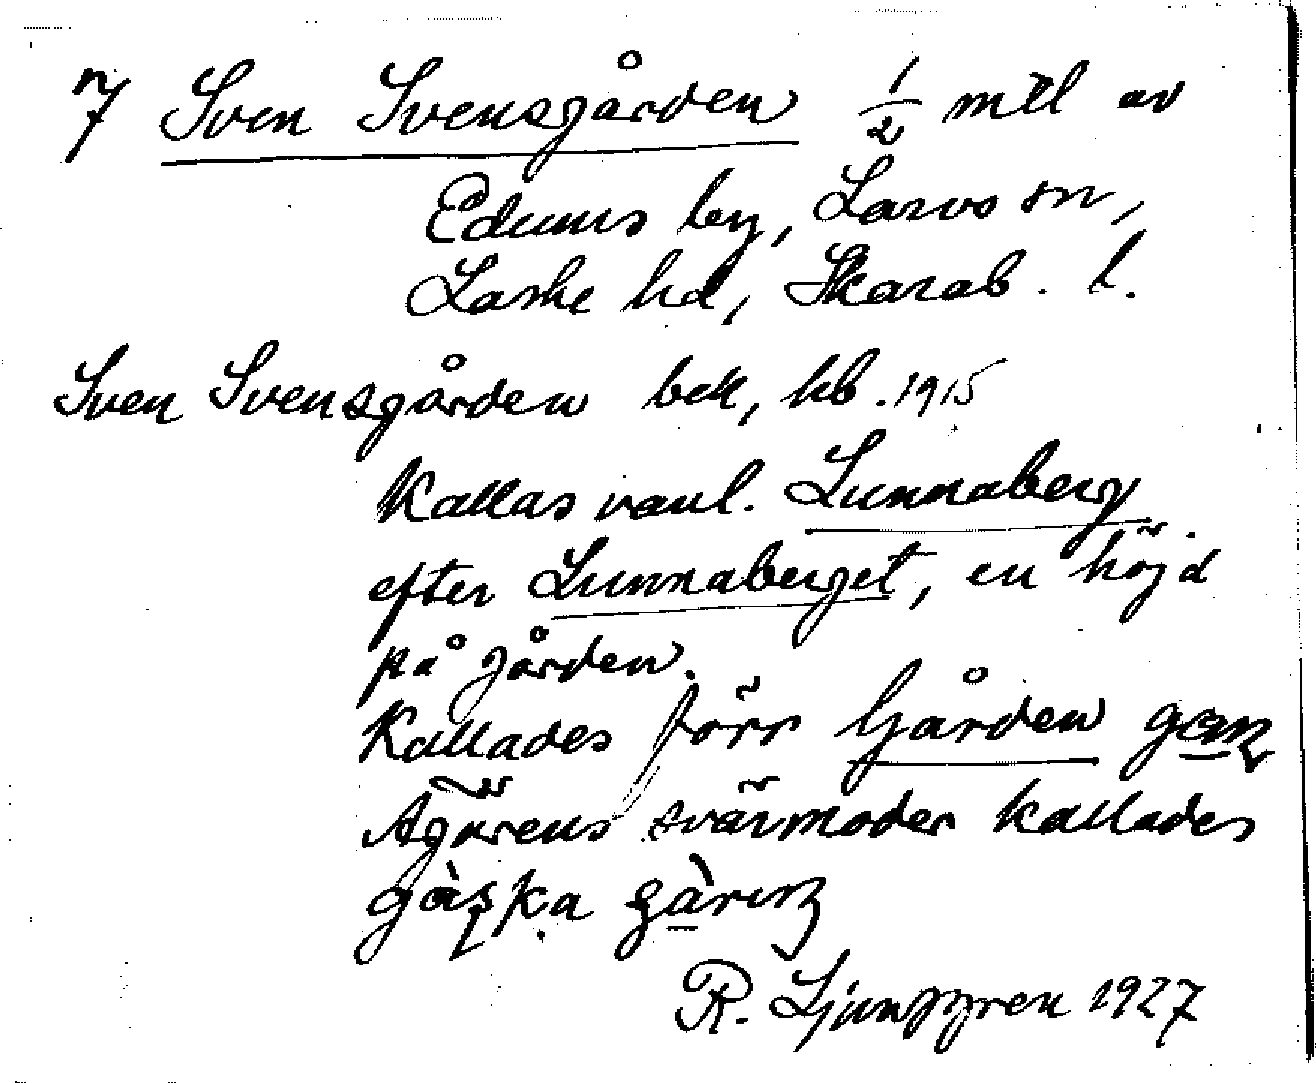 7 Sven Svensgården 1/2 mtl av
Edums by, Larvs sn,
Laske hd, Skarab. l.
Sven Svensgården bek, kb. 1915
Kallas vanl. Lunnaberg
efter Lunnaberget, en höjd
på gården.
Kallades förr Gården
Ägarens svärmoder kallades
R. Ljunggren 1927